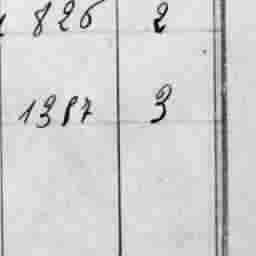 826 2
1387 3